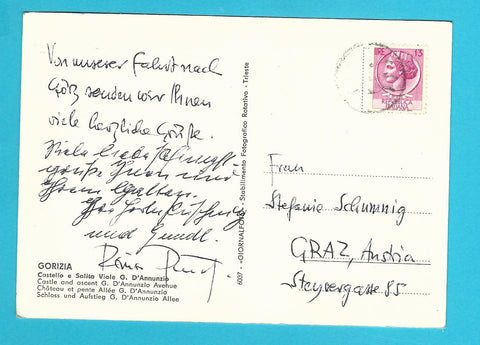 Von unserer Fahrt nach
Görz senden wir Ihnen
viele herzliche Grüße.
Viele liebe
Ihnen und
Ihrem Gatten.
und Gundl.
GORIZIA
Castello e Salita Viale G. D'Annunzio
Castle and ascent G. D'Annunzio Avenue
Château et pente Allée G. D'Annunzio
Schloss und Aufstieg G. D'Annunzio Allee
6202 - «GIORNALFOTO» - Stabilimento Fotografico Rotativo - Trieste
LIRE 13
Frau
Stefanie Schumnig
GRAZ, Austria
Steyrergasse 85